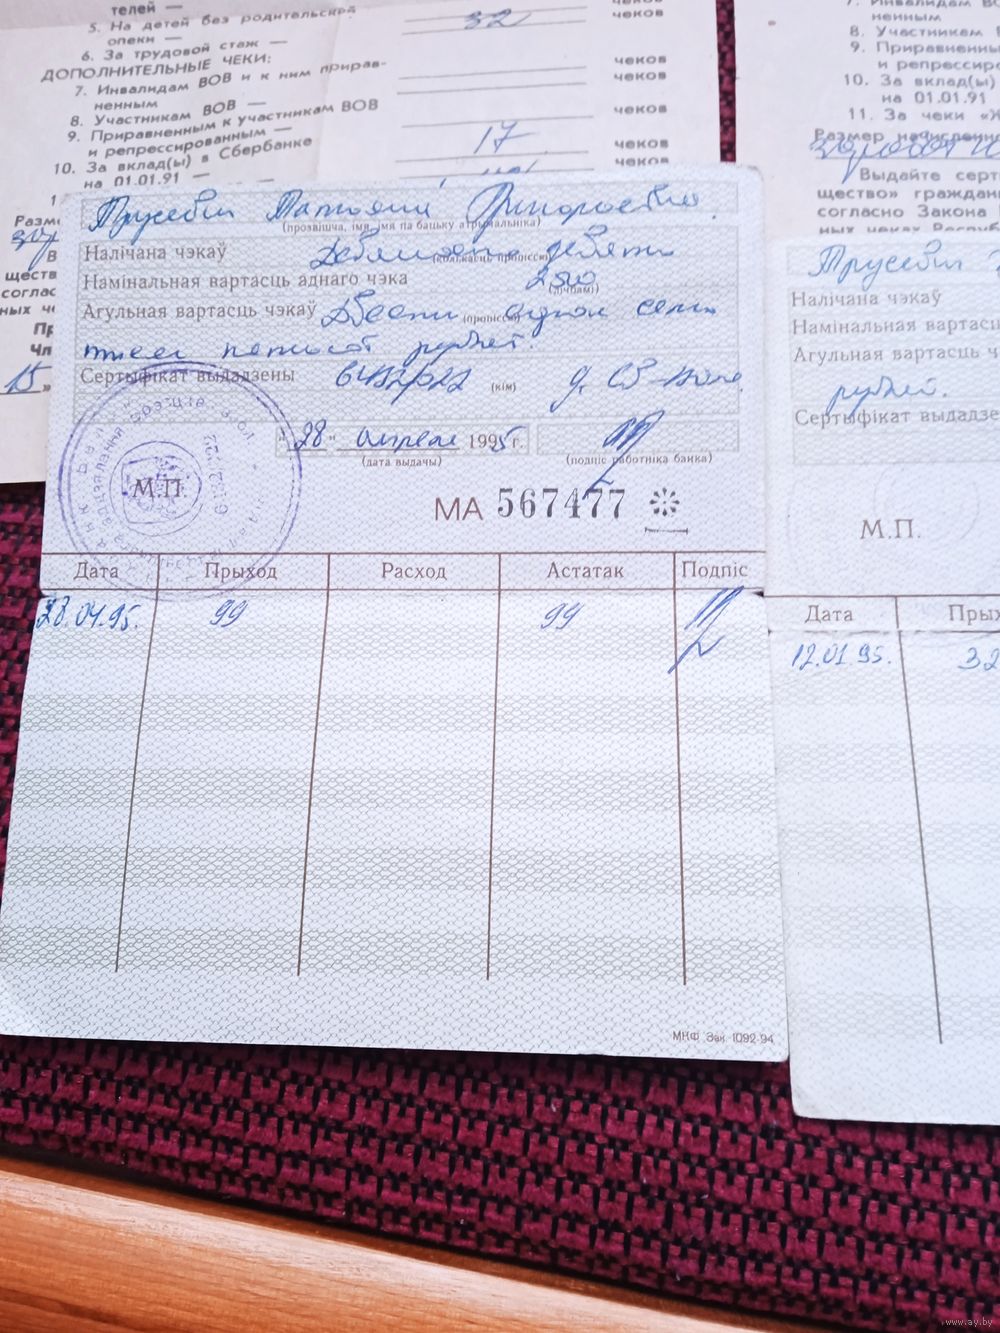 телей —
5. На детей без родительской
опеки —
6. За трудовой стаж —
ДОПОЛНИТЕЛЬНЫЕ ЧЕКИ:
7. Инвалидам ВОВ и к ним прирав-
ненным
8. Участникам ВОВ —
9. Приравненным к участникам ВОВ
и репрессированным —
10. За вклад(ы) в Сбербанке
на 01.01.91 —
32
чеков
чеков
чеков
чеков
17
чеков
чеков
Разм
В
ществ
соглас
ных че
Пр
Чл
15 »
7. Инвалидам ВО
ненным
8. Участникам
9. Приравненны
и репрессиро
10. За вклад(ы)
на 01.01.91
11. За чеки «Ж
Размер начисленн
Выдайте серт
щество» граждан
согласно Закона
ных чеках Респуб
Трусевич Татьяна Григорьевна
(прозвішча, імя, імя па бацьку атрымальніка)
Налічана чэкаў Девяносто девять
Намінальная вартасць аднаго чэка 250
(лічбамі)
Агульная вартасць чэкаў Двести сорок семь
(пропіссю)
тысяч пятьсот рублей
Сертыфікат выдадзены
(кім)
"28" апреля 1995 г.
(дата выдачы)
(подпіс работніка банка)
М.П.
МА 567477
Дата Прыход Расход Астатак Подпіс
28.04.95. 99 99
МКФ Зак. 1092-94
Трусевич
Налічана чэкаў
Намінальная вартасц
Агульная вартасць ч
рублей.
Сертыфікат выдадзе
М.П.
Дата Прых
12.01.95. 32
www.ay.by